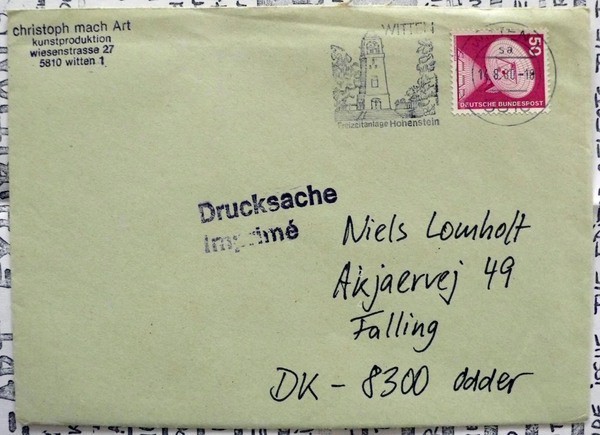 christoph mach Art
kunstproduktion
wiesenstrasse 27
5810 witten 1
WITTEN
Freizeitanlage Hohenstein
sa
50
DEUTSCHE BUNDESPOST
Drucksache
Imprimé
Niels Lomholt
Akjaervej 49
Falling
DK - 8300 odder